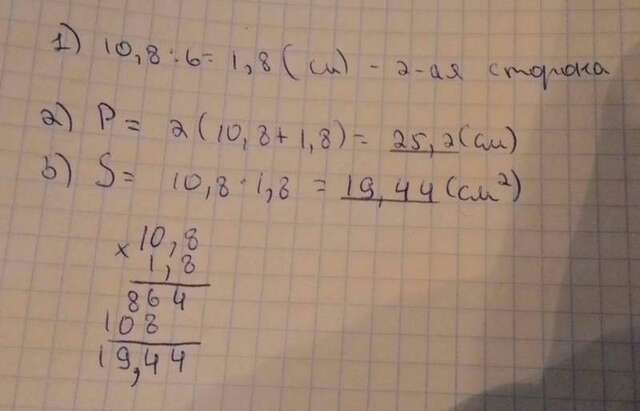 1) 10,8:6= 1,8(см) - 2-ая сторона
2) P= 2(10,8+1,8)= 25,2(см)
3) S= 10,8·1,8 = 19,44(см²)
× 10,8
1,8
864
108
19,44